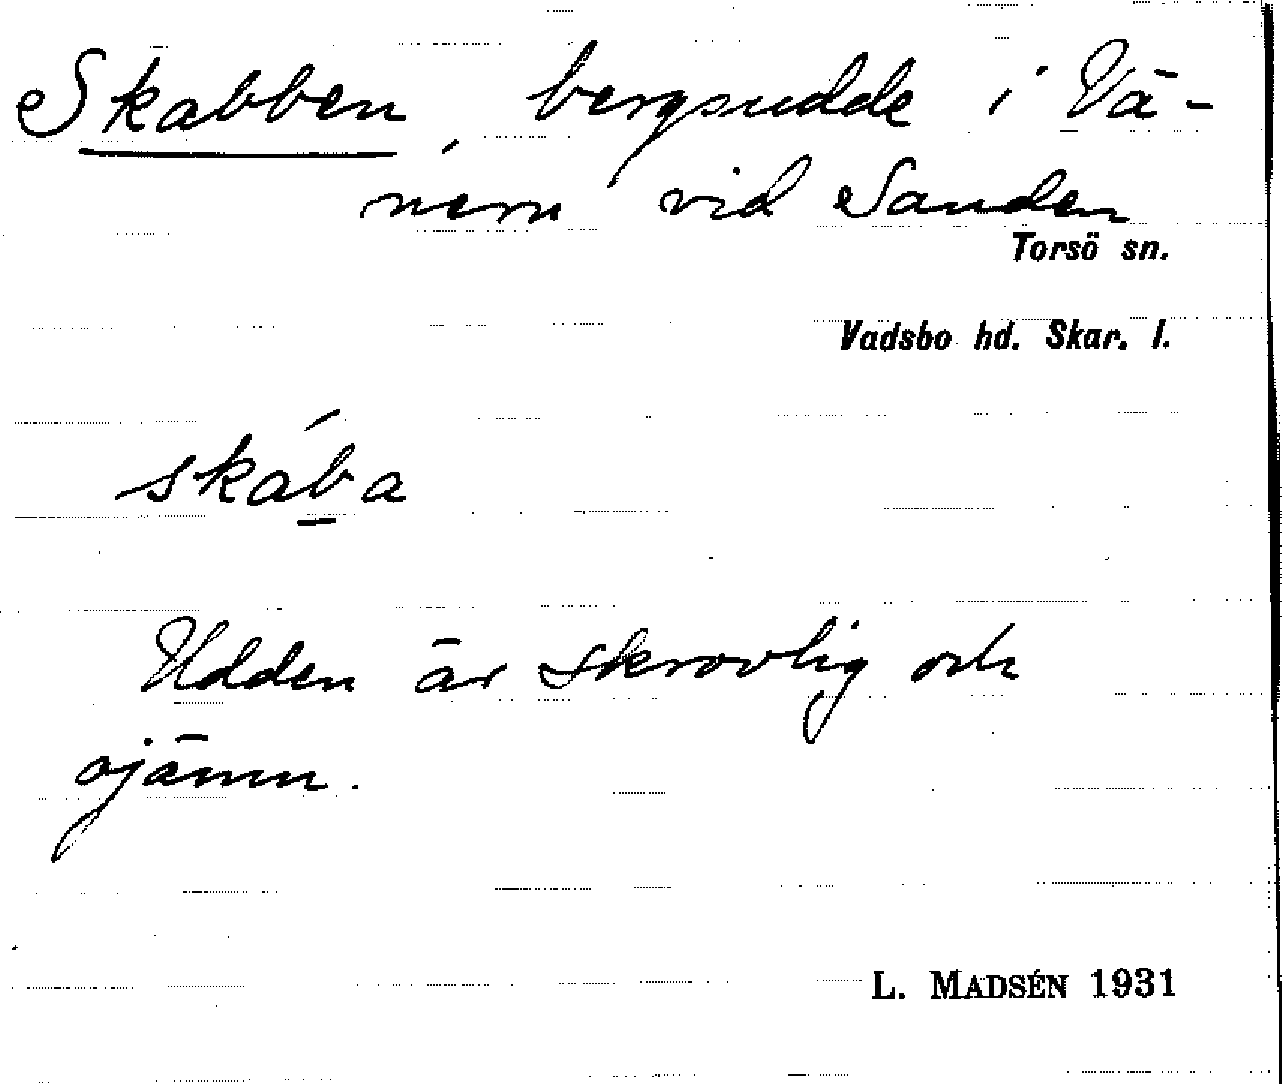 Skabben, bergsudde i Vä-
nern vid Sanden
Torsö sn.
Vadsbo hd. Skar. l.
skába
Udden är skrovlig och
ojämn.
L. MADSÉN 1931